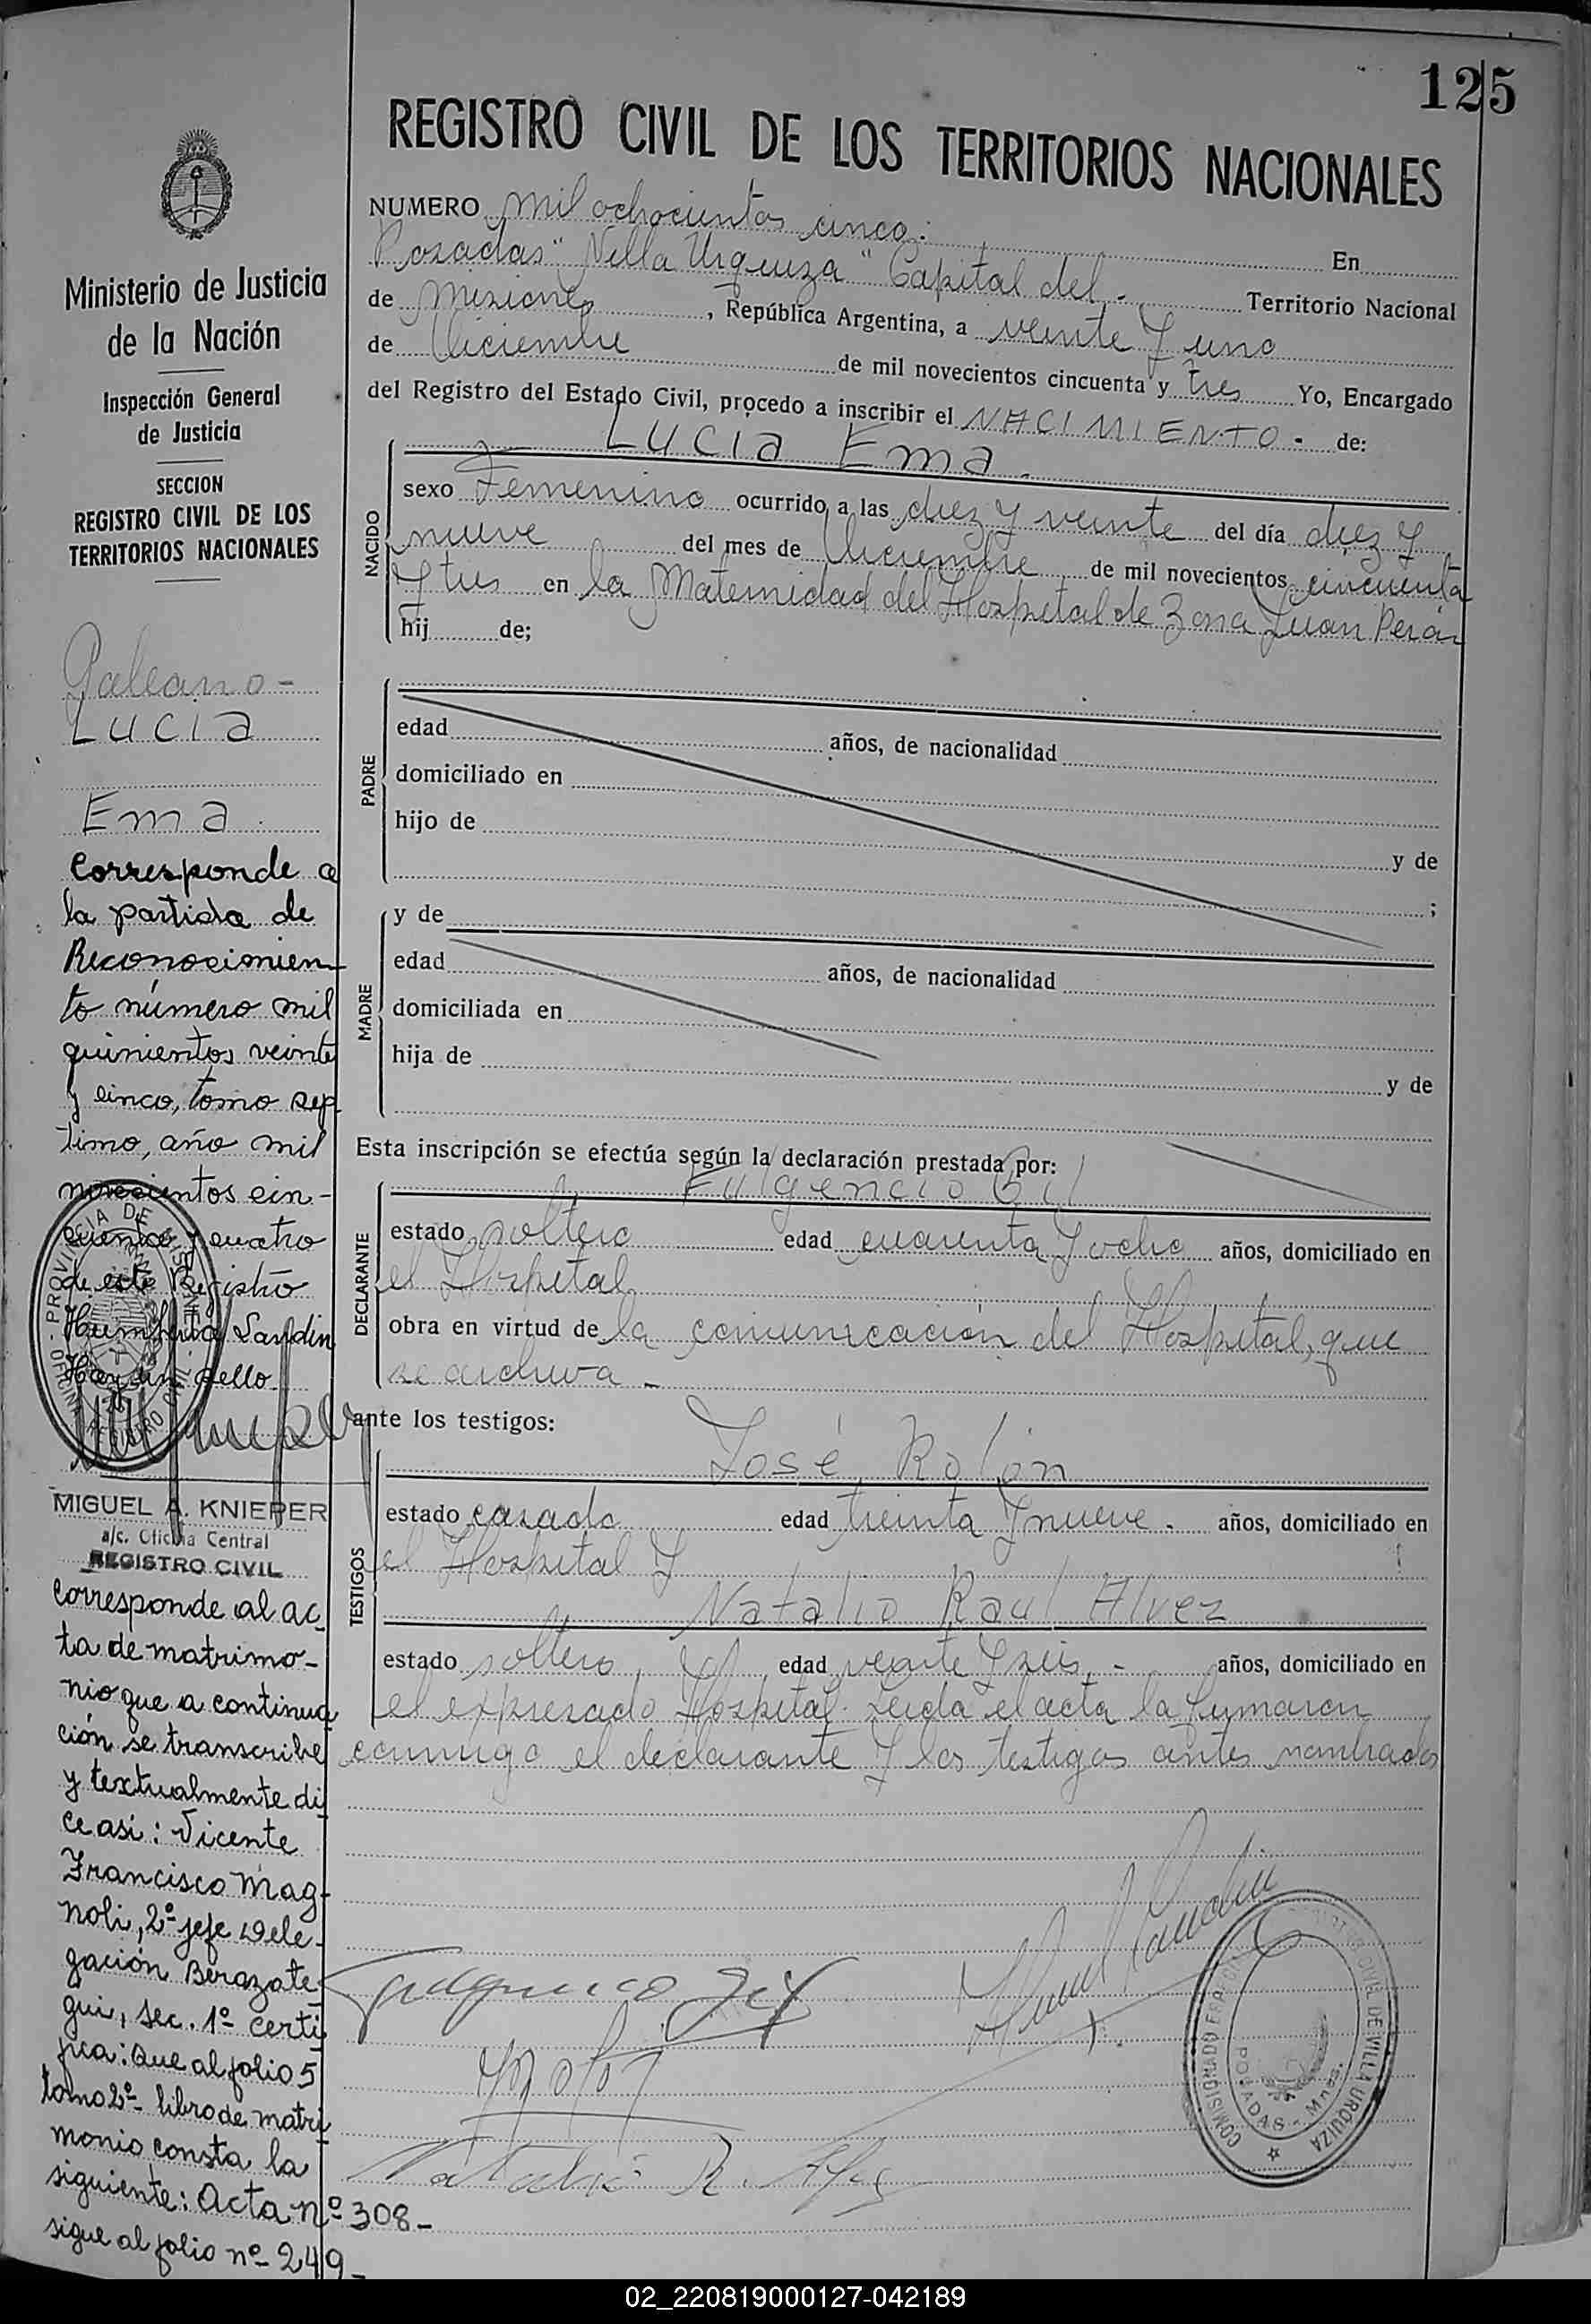 125
REGISTRO CIVIL DE LOS TERRITORIOS NACIONALES
Ministerio de Justicia
de la Nación
Inspección General
de Justicia
SECCION
REGISTRO CIVIL DE LOS
TERRITORIOS NACIONALES
Galeano-
LUCIA
Ema
Corresponde a
la partida de
Reconocimien
to número mil
quinientos veinte
y cinco, tomo sep
timo, año mil
novecientos cin-
cuenta y cuatro
de este Registro
Humberto Landin
Hay un sello
MIGUEL A. KNIEPER
a/c. Oficina Central
REGISTRO CIVIL
Corresponde al ac
ta de matrimo-
nio que a continua
ción se transcribe
y textualmente di
ce así: Vicente
Francisco Mag-
noli, 2º jefe Dele-
gación Berazate
gui, sec. 1º certi
fica: que al folio 5
tomo 2º libro de matri
monio consta la
siguiente: Acta nº 308-
sigue al folio nº 249-
NUMERO mil ochocientos cinco: En
Posadas "Villa Urquiza" Capital del.- Territorio Nacional
de Misiones, República Argentina, a veinte y uno
de Diciembre de mil novecientos cincuenta y tres Yo, Encargado
del Registro del Estado Civil, procedo a inscribir el NACIMIENTO- de:
LUCIA Ema.-
NACIDO
sexo Femenino ocurrido a las diez y veinte del día diez y
nueve del mes de Diciembre de mil novecientos cincuenta
y tres en la Maternidad del Hospital de Zona Juan Perón
hij de;
PADRE
edad años, de nacionalidad
domiciliado en
hijo de
y de
;
MADRE
y de
edad años, de nacionalidad
domiciliada en
hija de
y de
Esta inscripción se efectúa según la declaración prestada por:
Fulgencio Gil
DECLARANTE
estado soltero edad cuarenta y ocho años, domiciliado en
el Hospital
obra en virtud de la comunicación del Hospital, que
se archiva-
ante los testigos:
José Rolón
TESTIGOS
estado casado edad treinta y nueve.- años, domiciliado en
el Hospital y
Natalio Raul Alvez
estado soltero, edad veinte y seis,- años, domiciliado en
el expresado Hospital. Leída el acta la firmaron
conmigo el declarante y los testigos antes nombrados
Fulgencio Gil
Natalio R. Alvez
COMISIONADO
REGISTRO CIVIL DE VILLA URQUIZA
POSADAS - Mnes.
PROVINCIA DE MISIONES
02_220819000127-042189